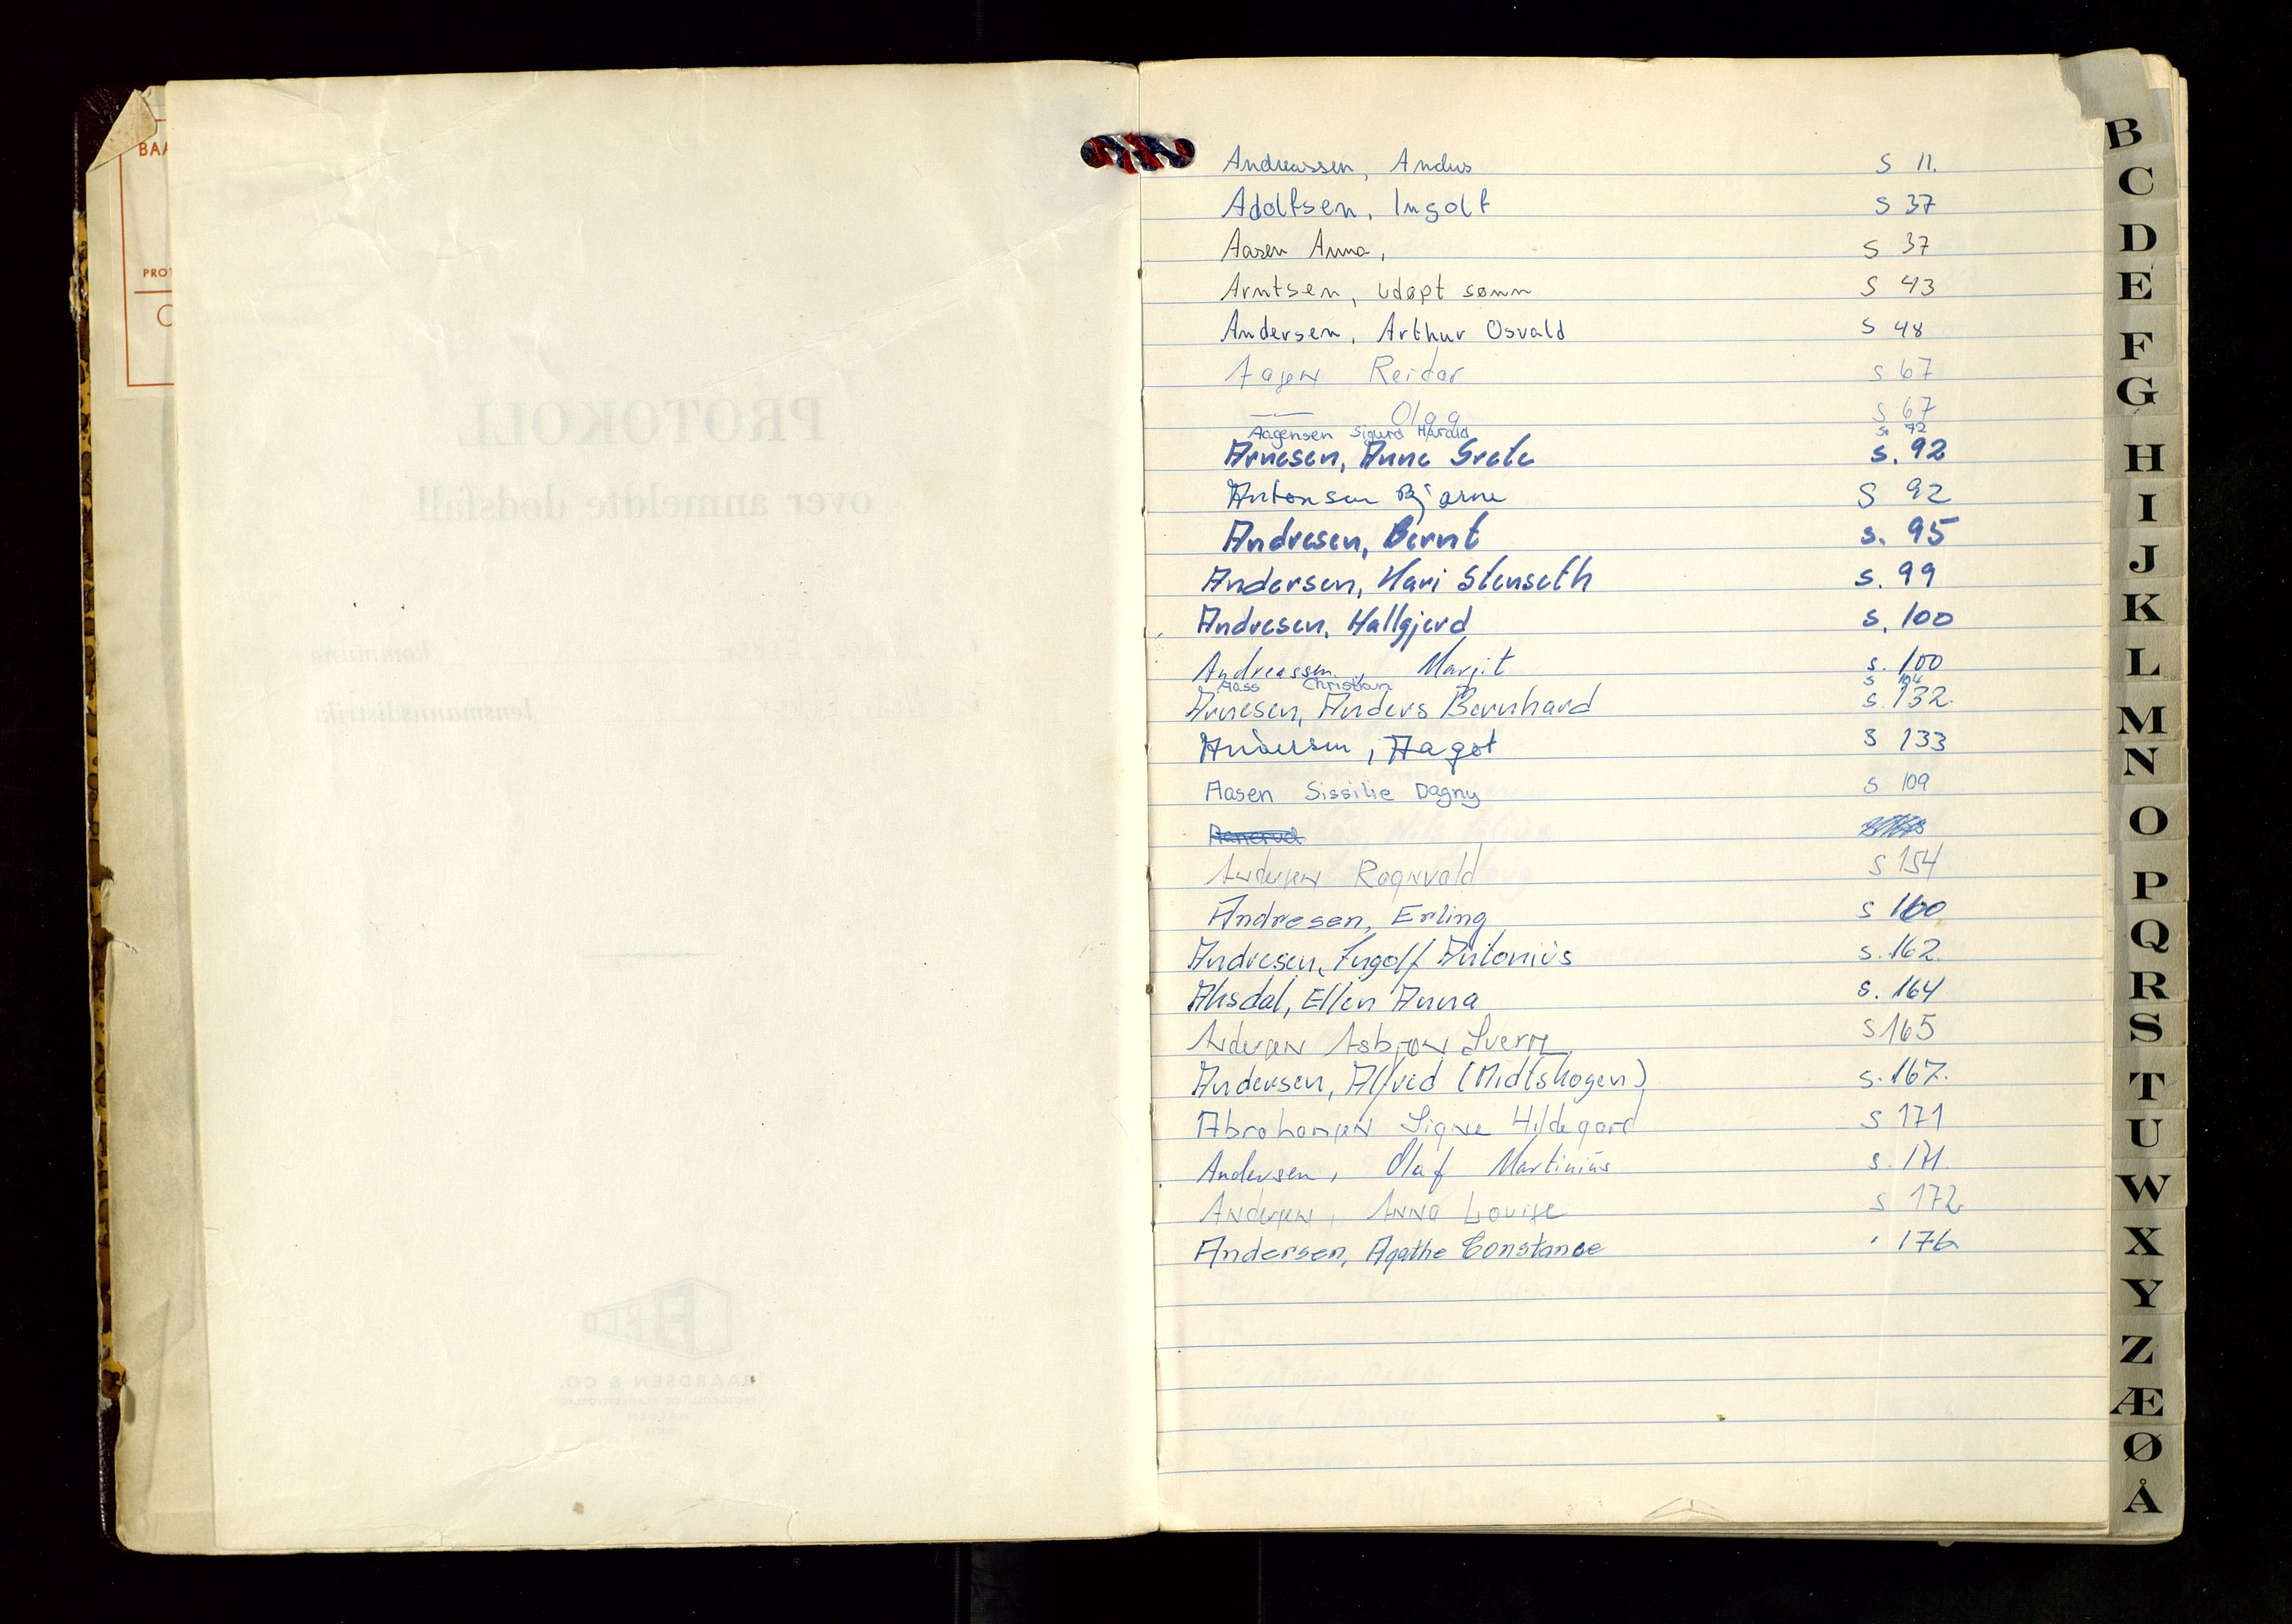 BAA
PROT
PROTOKOLL
over anmeldte dødsfall
kommune
lensmannsdistrikt
BAARDSEN & CO.
HALDEN
Andreassen, Anders S 11.
Adolfsen, Ingolf S 37
Aasen Anna, S 37
Arntsen, udøpt sønn S 43
Andersen, Arthur Osvald S 48
Aasen Reidar S 67
—"— Olga S 67
Aagensen Sigurd Harald s. 72
Arnesen, Anne Grete s. 92
Antonsen Bjarne S 92
Andresen, Bernt s. 95
Andersen, Kari Stenseth s. 99
Andresen, Hallgjerd s. 100
Andreassen, Margit s. 100
Aass Christian s 104
Arnesen, Anders Bernhard s. 132.
Andersen, Aagot S 133
Aasen Sissilie Dagny S 109
Andersen Ragnvald S 154
Andresen, Erling S 160
Andresen, Ingolf Antonius s. 162.
Aksdal, Ellen Anna s. 164
Andersen Asbjørn Sverre S 165
Andersen, Alfred (Midtskogen) s. 167.
Abrahamsen Signe Hildegard S 171
Andersen, Olaf Martinius s. 171.
Andersen, Anna Lovise S 172
Andersen, Agathe Constance " 176
B
C
D
E
F
G
H
I
J
K
L
M
N
O
P
Q
R
S
T
U
W
X
Y
Z
Æ
Ø
Å